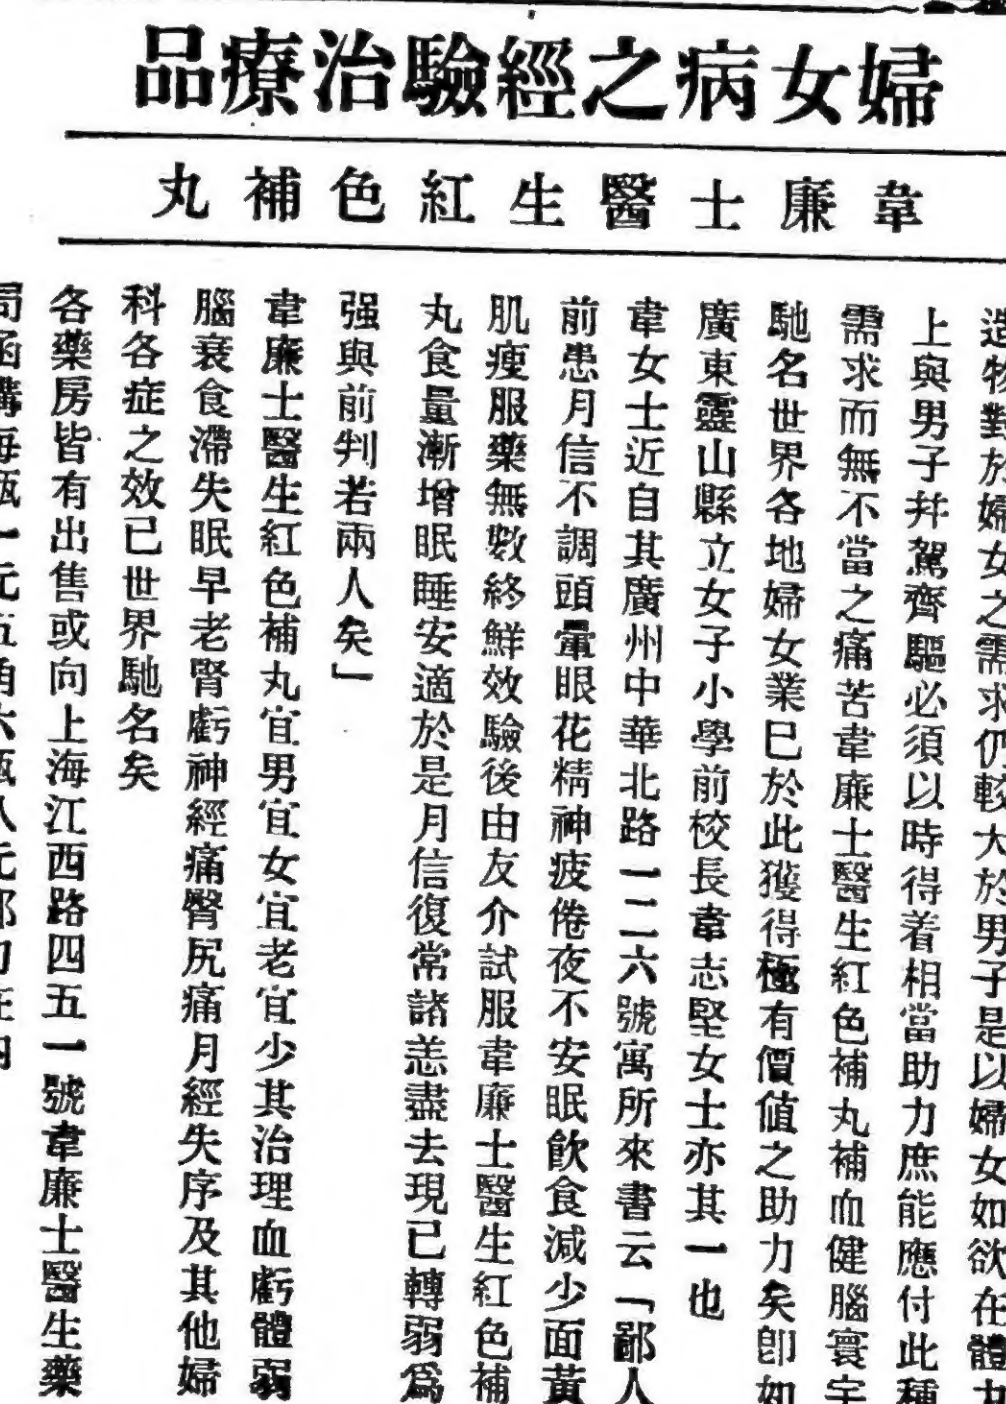 婦女病之經驗治療品
韋廉士醫生紅色補丸
造物對於婦女之需求仍較大於男子是以婦女如欲在體力
上與男子并駕齊驅必須以時得着相當助力庶能應付此種
需求而無不當之痛苦韋廉士醫生紅色補丸補血健腦寰宇
馳名世界各地婦女業已於此獲得極有價値之助力矣卽如
廣東靈山縣立女子小學前校長韋志堅女士亦其一也
韋女士近自其廣州中華北路一二六號寓所來書云「鄙人
前患月信不調頭暈眼花精神疲倦夜不安眠飮食減少面黃
肌瘦服藥無數終鮮效驗後由友介試服韋廉士醫生紅色補
丸食量漸增眠睡安適於是月信復常諸恙盡去現已轉弱爲
强與前判若兩人矣」
韋廉士醫生紅色補丸宜男宜女宜老宜少其治理血虧體弱
腦衰食滯失眠早老腎虧神經痛臀尻痛月經失序及其他婦
科各症之效已世界馳名矣
各藥房皆有出售或向上海江西路四五一號韋廉士醫生藥
局函購每瓶一元五角六瓶八元郵力在內